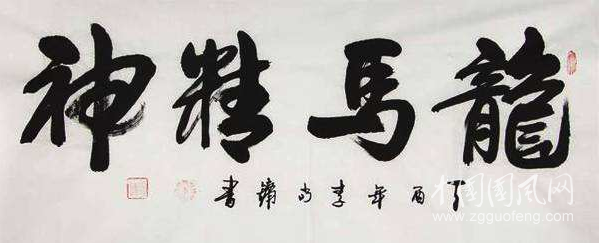 龍馬精神
丁酉年李尚鏽書
中国国风网
www.zgguofeng.com